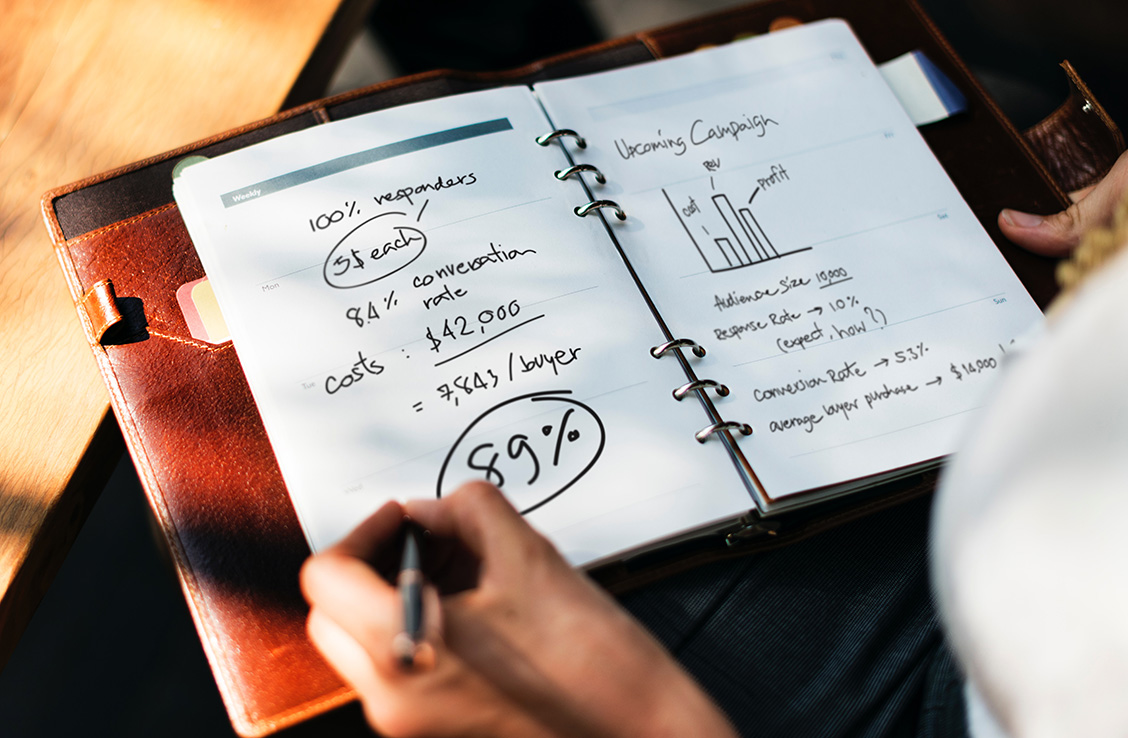 Weekly
100% responders
5$ each
8.4% conversation
rate
costs : $42,000
= 7,843 /buyer
89%
Mon
Tue
Wed
Upcoming Campaign
cost
Rev
profit
Audience Size 10,000
Response Rate → 10%
(expect, how?)
Conversion Rate → 5.3%
average buyer purchase → $14000
Sat
Sun